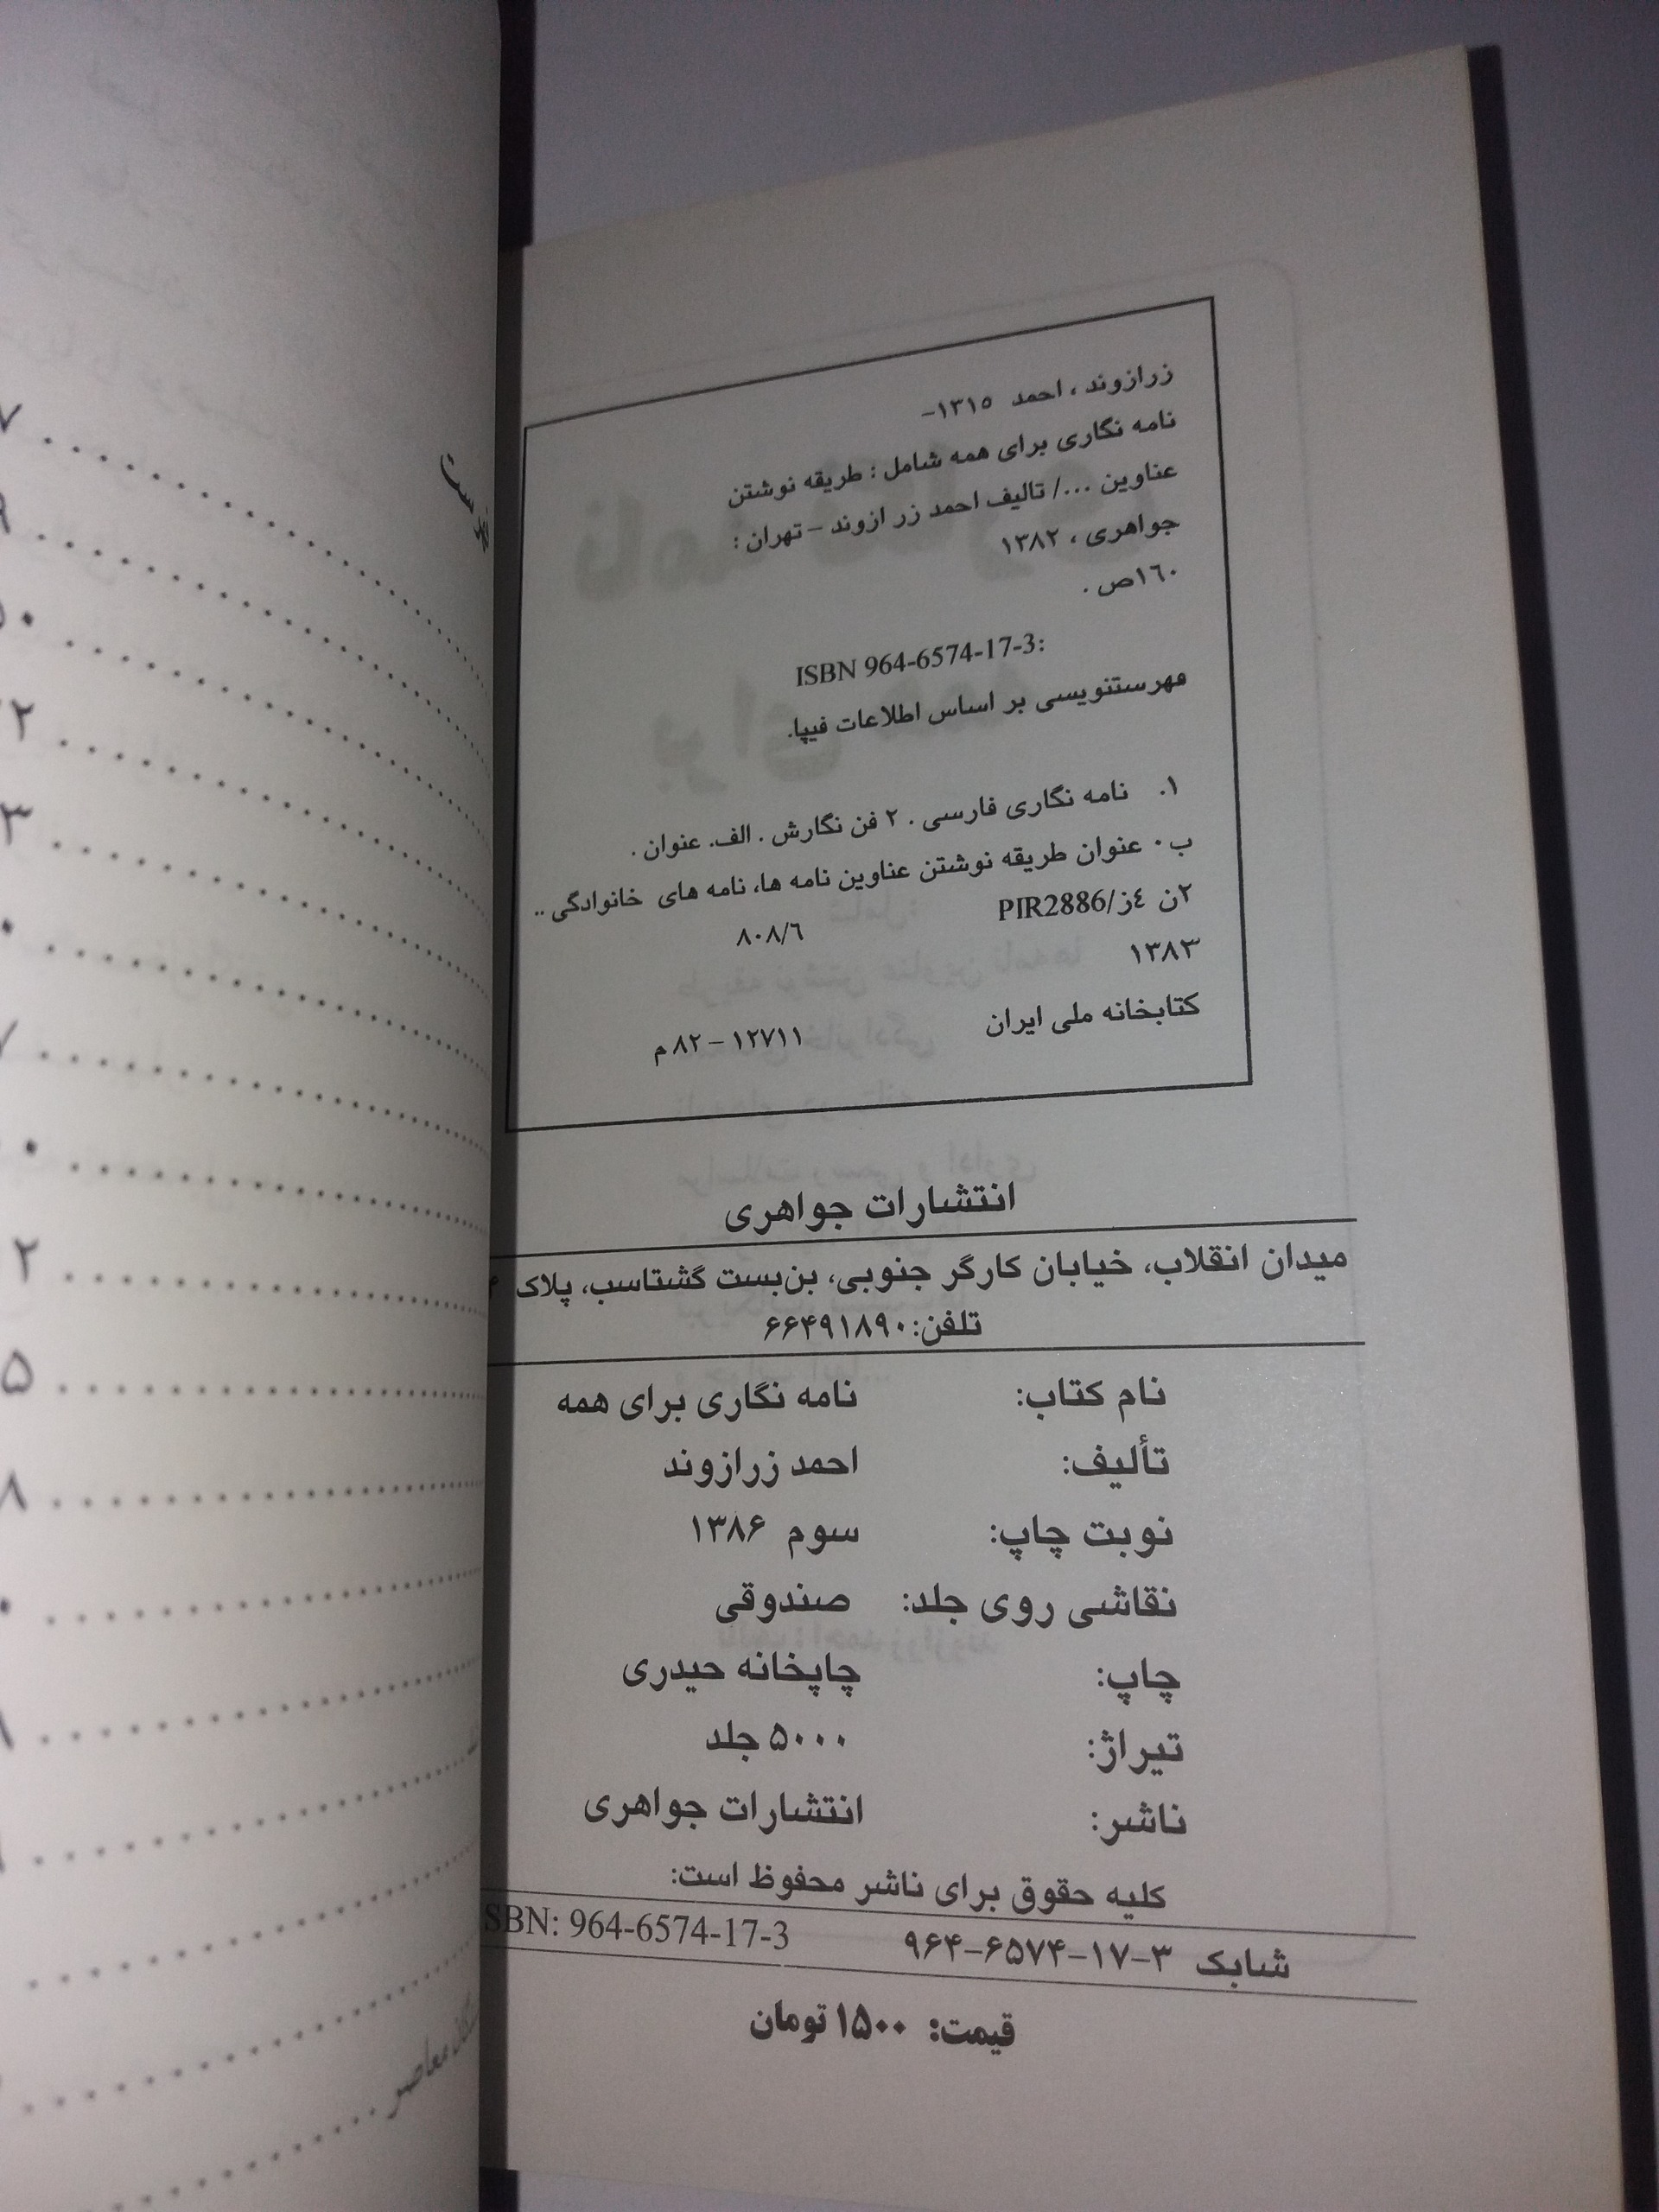 زرازوند ، احمد ١٣١٥-
نامه نگاری برای همه شامل : طریقه نوشتن
عناوین .../ تالیف احمد زر ازوند – تهران :
جواهری ، ١٣٨٢
١٦٠ص .
ISBN 964-6574-17-3:
فهرستنویسی بر اساس اطلاعات فیپا.
١. نامه نگاری فارسی . ٢ فن نگارش . الف. عنوان .
ب . عنوان طریقه نوشتن عناوین نامه ها، نامه های خانوادگی ..
٢ن ٤ز/PIR2886 ٨٠٨/٦
١٣٨٣
کتابخانه ملی ایران ١٢٧١١ – ٨٢ م
انتشارات جواهری
میدان انقلاب، خیابان کارگر جنوبی، بن‌بست گشتاسب، پلاک
تلفن: ۶۶۴۹۱۸۹۰
نام کتاب: نامه نگاری برای همه
تألیف: احمد زرازوند
نوبت چاپ: سوم ۱۳۸۶
نقاشی روی جلد: صندوقی
چاپ: چاپخانه حیدری
تیراژ: ۵۰۰۰ جلد
ناشر: انتشارات جواهری
کلیه حقوق برای ناشر محفوظ است:
شابک ۳-۱۷-۶۵۷۴-۹۶۴ SBN: 964-6574-17-3
قیمت: ۱۵۰۰ تومان